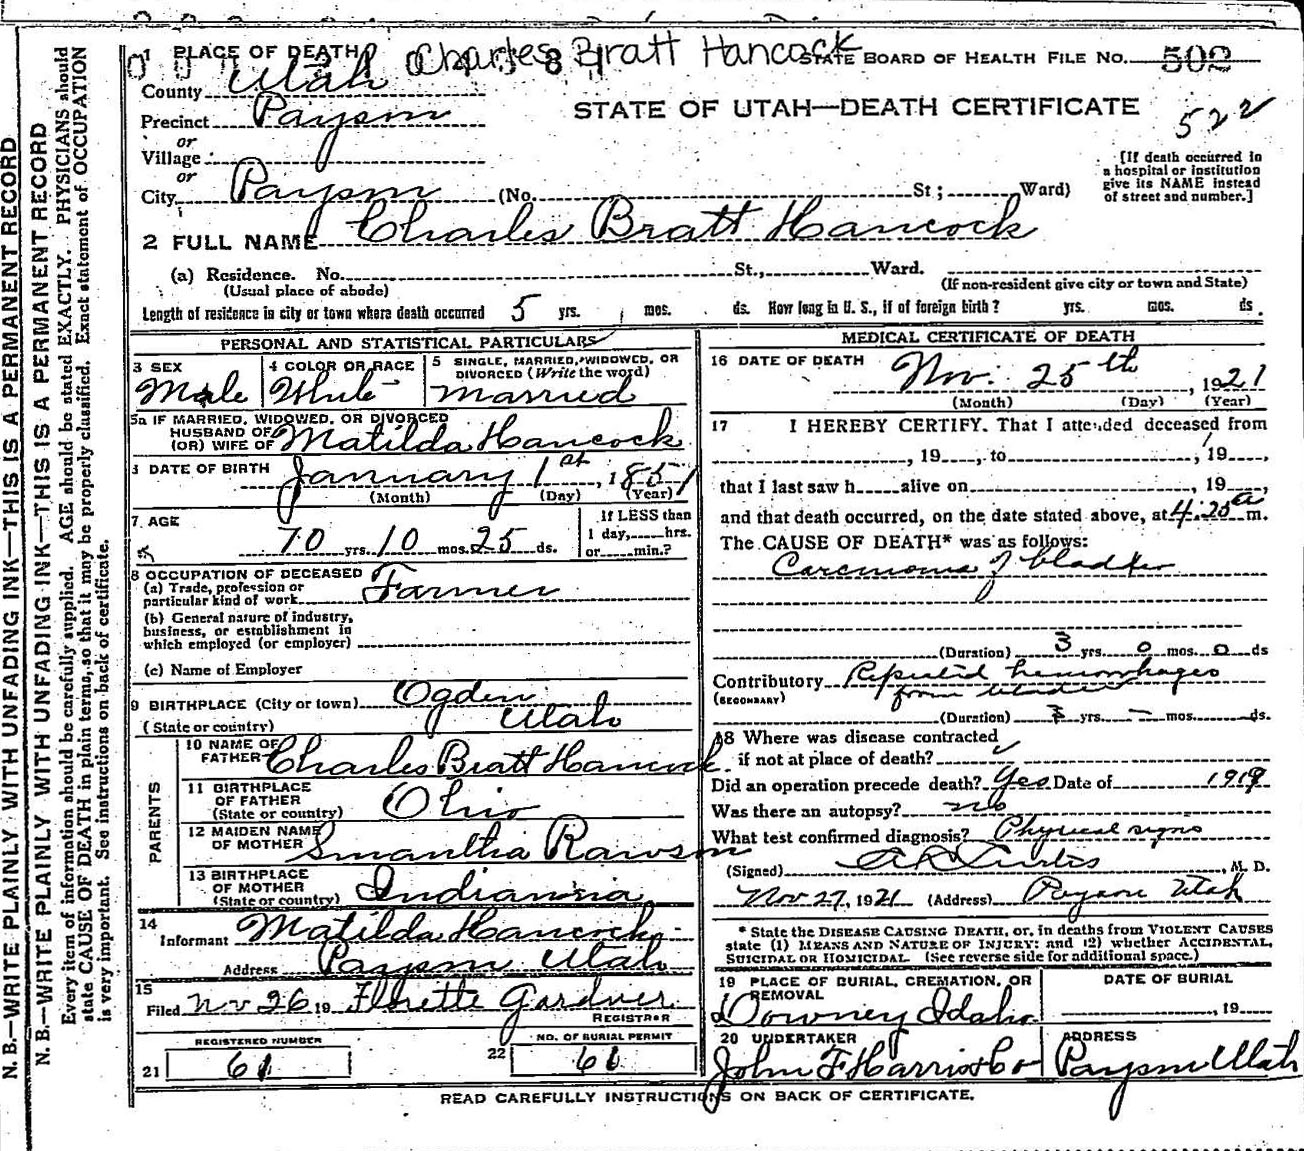 N. B.—WRITE PLAINLY WITH UNFADING INK—THIS IS A PERMANENT RECORD
N. B.—WRITE PLAINLY WITH UNFADING INK—THIS IS A PERMANENT RECORD
Every item of information should be carefully supplied. AGE should be stated EXACTLY. PHYSICIANS should
state CAUSE OF DEATH in plain terms, so that it may be properly classified. Exact statement of OCCUPATION
is very important. See instructions on back of certificate.
1 PLACE OF DEATH Charles Bratt Hancock STATE BOARD OF HEALTH FILE NO. 502
County Utah
STATE OF UTAH—DEATH CERTIFICATE 522
Precinct Payson
or
Village
or
City Payson (No. St; Ward)
[If death occurred in
a hospital or institution
give its NAME instead
of street and number.]
2 FULL NAME Charles Bratt Hancock
(a) Residence. No. St., Ward.
(Usual place of abode) (If non-resident give city or town and State)
Length of residence in city or town where death occurred 5 yrs. mos. ds. How long in U. S., if of foreign birth? yrs. mos. ds.
PERSONAL AND STATISTICAL PARTICULARS
3 SEX Male
4 COLOR OR RACE White
5 SINGLE, MARRIED, WIDOWED, OR
DIVORCED (Write the word)
Married
5a IF MARRIED, WIDOWED, OR DIVORCED
HUSBAND OF
(OR) WIFE OF Matilda Hancock
DATE OF BIRTH January 1st, 1851
(Month) (Day) (Year)
7 AGE 70 yrs. 10 mos. 25 ds.
If LESS than
1 day, hrs.
or min.?
8 OCCUPATION OF DECEASED
(a) Trade, profession or
particular kind of work Farmer
(b) General nature of industry,
business, or establishment in
which employed (or employer)
(c) Name of Employer
9 BIRTHPLACE (City or town) Ogden
(State or country) Utah
PARENTS
10 NAME OF
FATHER Charles Bratt Hancock
11 BIRTHPLACE
OF FATHER
(State or country) Ohio
12 MAIDEN NAME
OF MOTHER Smantha Rawson
13 BIRTHPLACE
OF MOTHER
(State or country) Indianna
14
Informant Matilda Hancock
Address Payson Utah
15
Filed Nov 26 19 Florette Gardner
REGISTRAR
REGISTERED NUMBER
21 61
NO. OF BURIAL PERMIT
22 61
MEDICAL CERTIFICATE OF DEATH
16 DATE OF DEATH Nov. 25th, 1921
(Month) (Day) (Year)
17 I HEREBY CERTIFY, That I attended deceased from
, 19 , to , 19 ,
that I last saw h alive on , 19 ,
and that death occurred, on the date stated above, at 4:20 a m.
The CAUSE OF DEATH* was as follows:
Carcinoma of bladder
(Duration) 3 yrs. 0 mos. 0 ds
Contributory Repeated hemorrhages
(SECONDARY) from bladder
(Duration) 3 yrs. — mos. ds.
18 Where was disease contracted
if not at place of death?
Did an operation precede death? Yes Date of 1919
Was there an autopsy? no
What test confirmed diagnosis? Physical signs
(Signed) A R Curtis, M. D.
Nov 27, 1921 (Address) Payson Utah
* State the DISEASE CAUSING DEATH, or, in deaths from VIOLENT CAUSES
state (1) MEANS AND NATURE OF INJURY; and (2) whether ACCIDENTAL,
SUICIDAL OR HOMICIDAL. (See reverse side for additional space.)
19 PLACE OF BURIAL, CREMATION, OR
REMOVAL
Downey Idaho
DATE OF BURIAL
, 19
20 UNDERTAKER
John F Harris Co
ADDRESS
Payson Utah
READ CAREFULLY INSTRUCTIONS ON BACK OF CERTIFICATE.